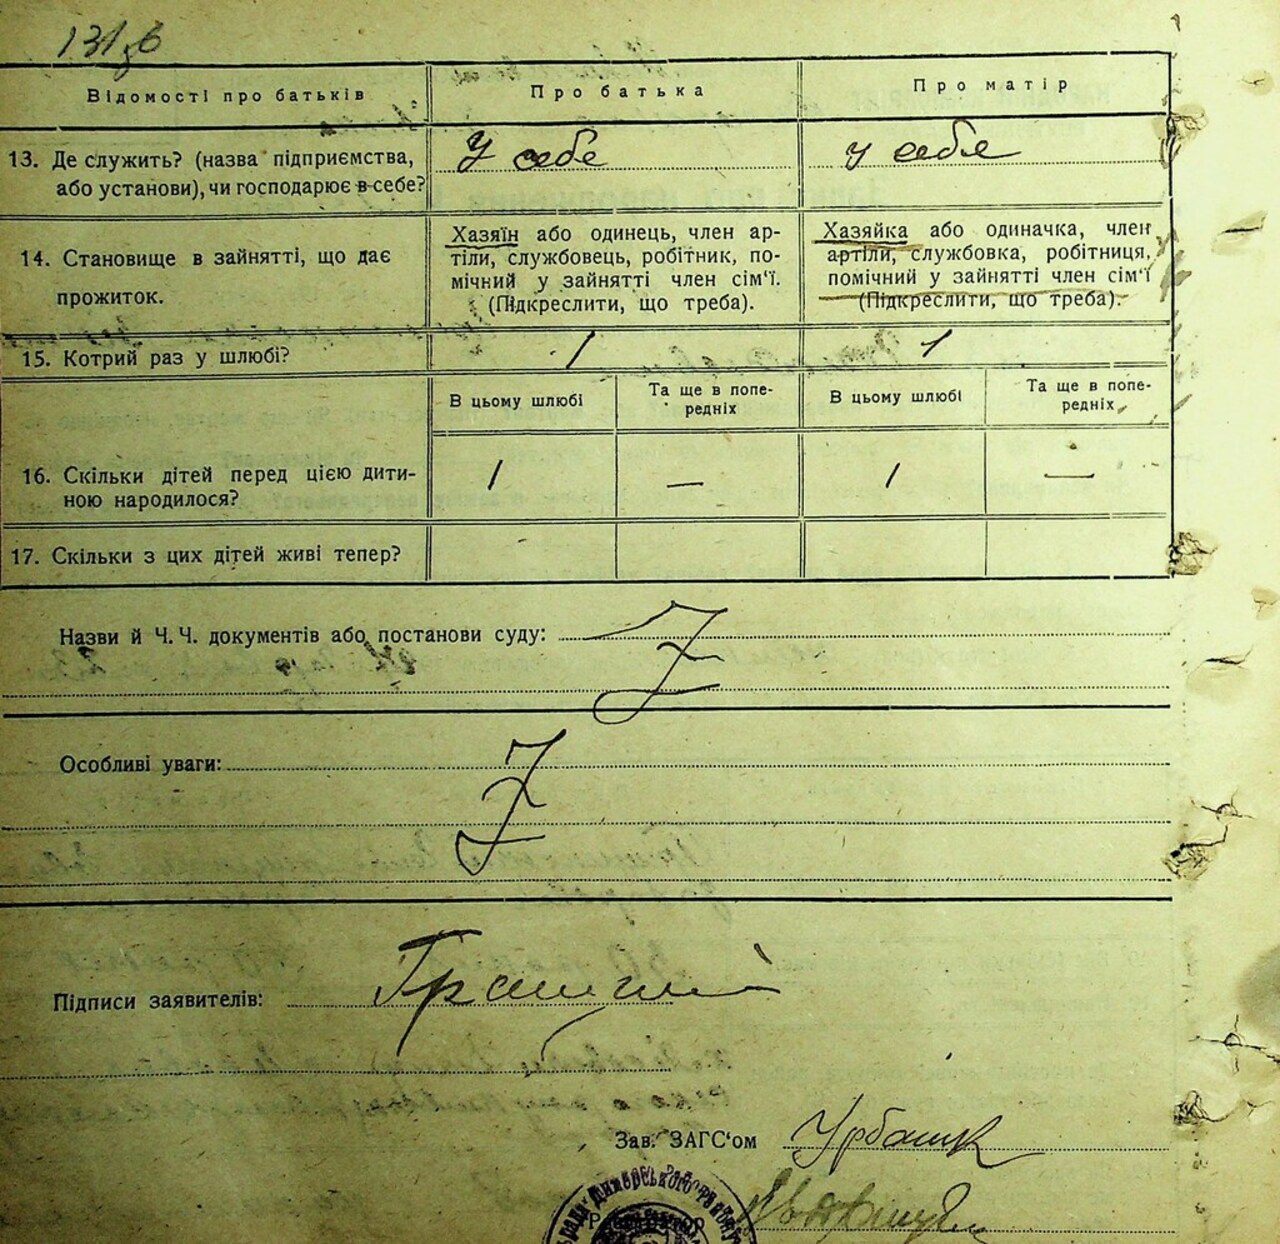 131зв
Відомості про батьків
Про батька
Про матір
13. Де служить? (назва підприємства,
або установи), чи господарює в себе?
У себе
у себе
14. Становище в зайнятті, що дає
прожиток.
Хазяїн або одинець, член ар-
тіли, службовець, робітник, по-
мічний у зайнятті член сім'ї.
(Підкреслити, що треба).
Хазяйка або одиначка, член
артіли, службовка, робітниця,
помічний у зайнятті член сім'ї
(Підкреслити, що треба).
15. Котрий раз у шлюбі?
1
1
В цьому шлюбі
Та ще в попе-
редніх
В цьому шлюбі
Та ще в попе-
редніх
16. Скільки дітей перед цією дити-
ною народилося?
1
—
1
—
17. Скільки з цих дітей живі тепер?
Назви й Ч. Ч. документів або постанови суду:
Z
Особливі уваги:
Z
Підписи заявителів:
Зав. ЗАГС'ом
Урбаник